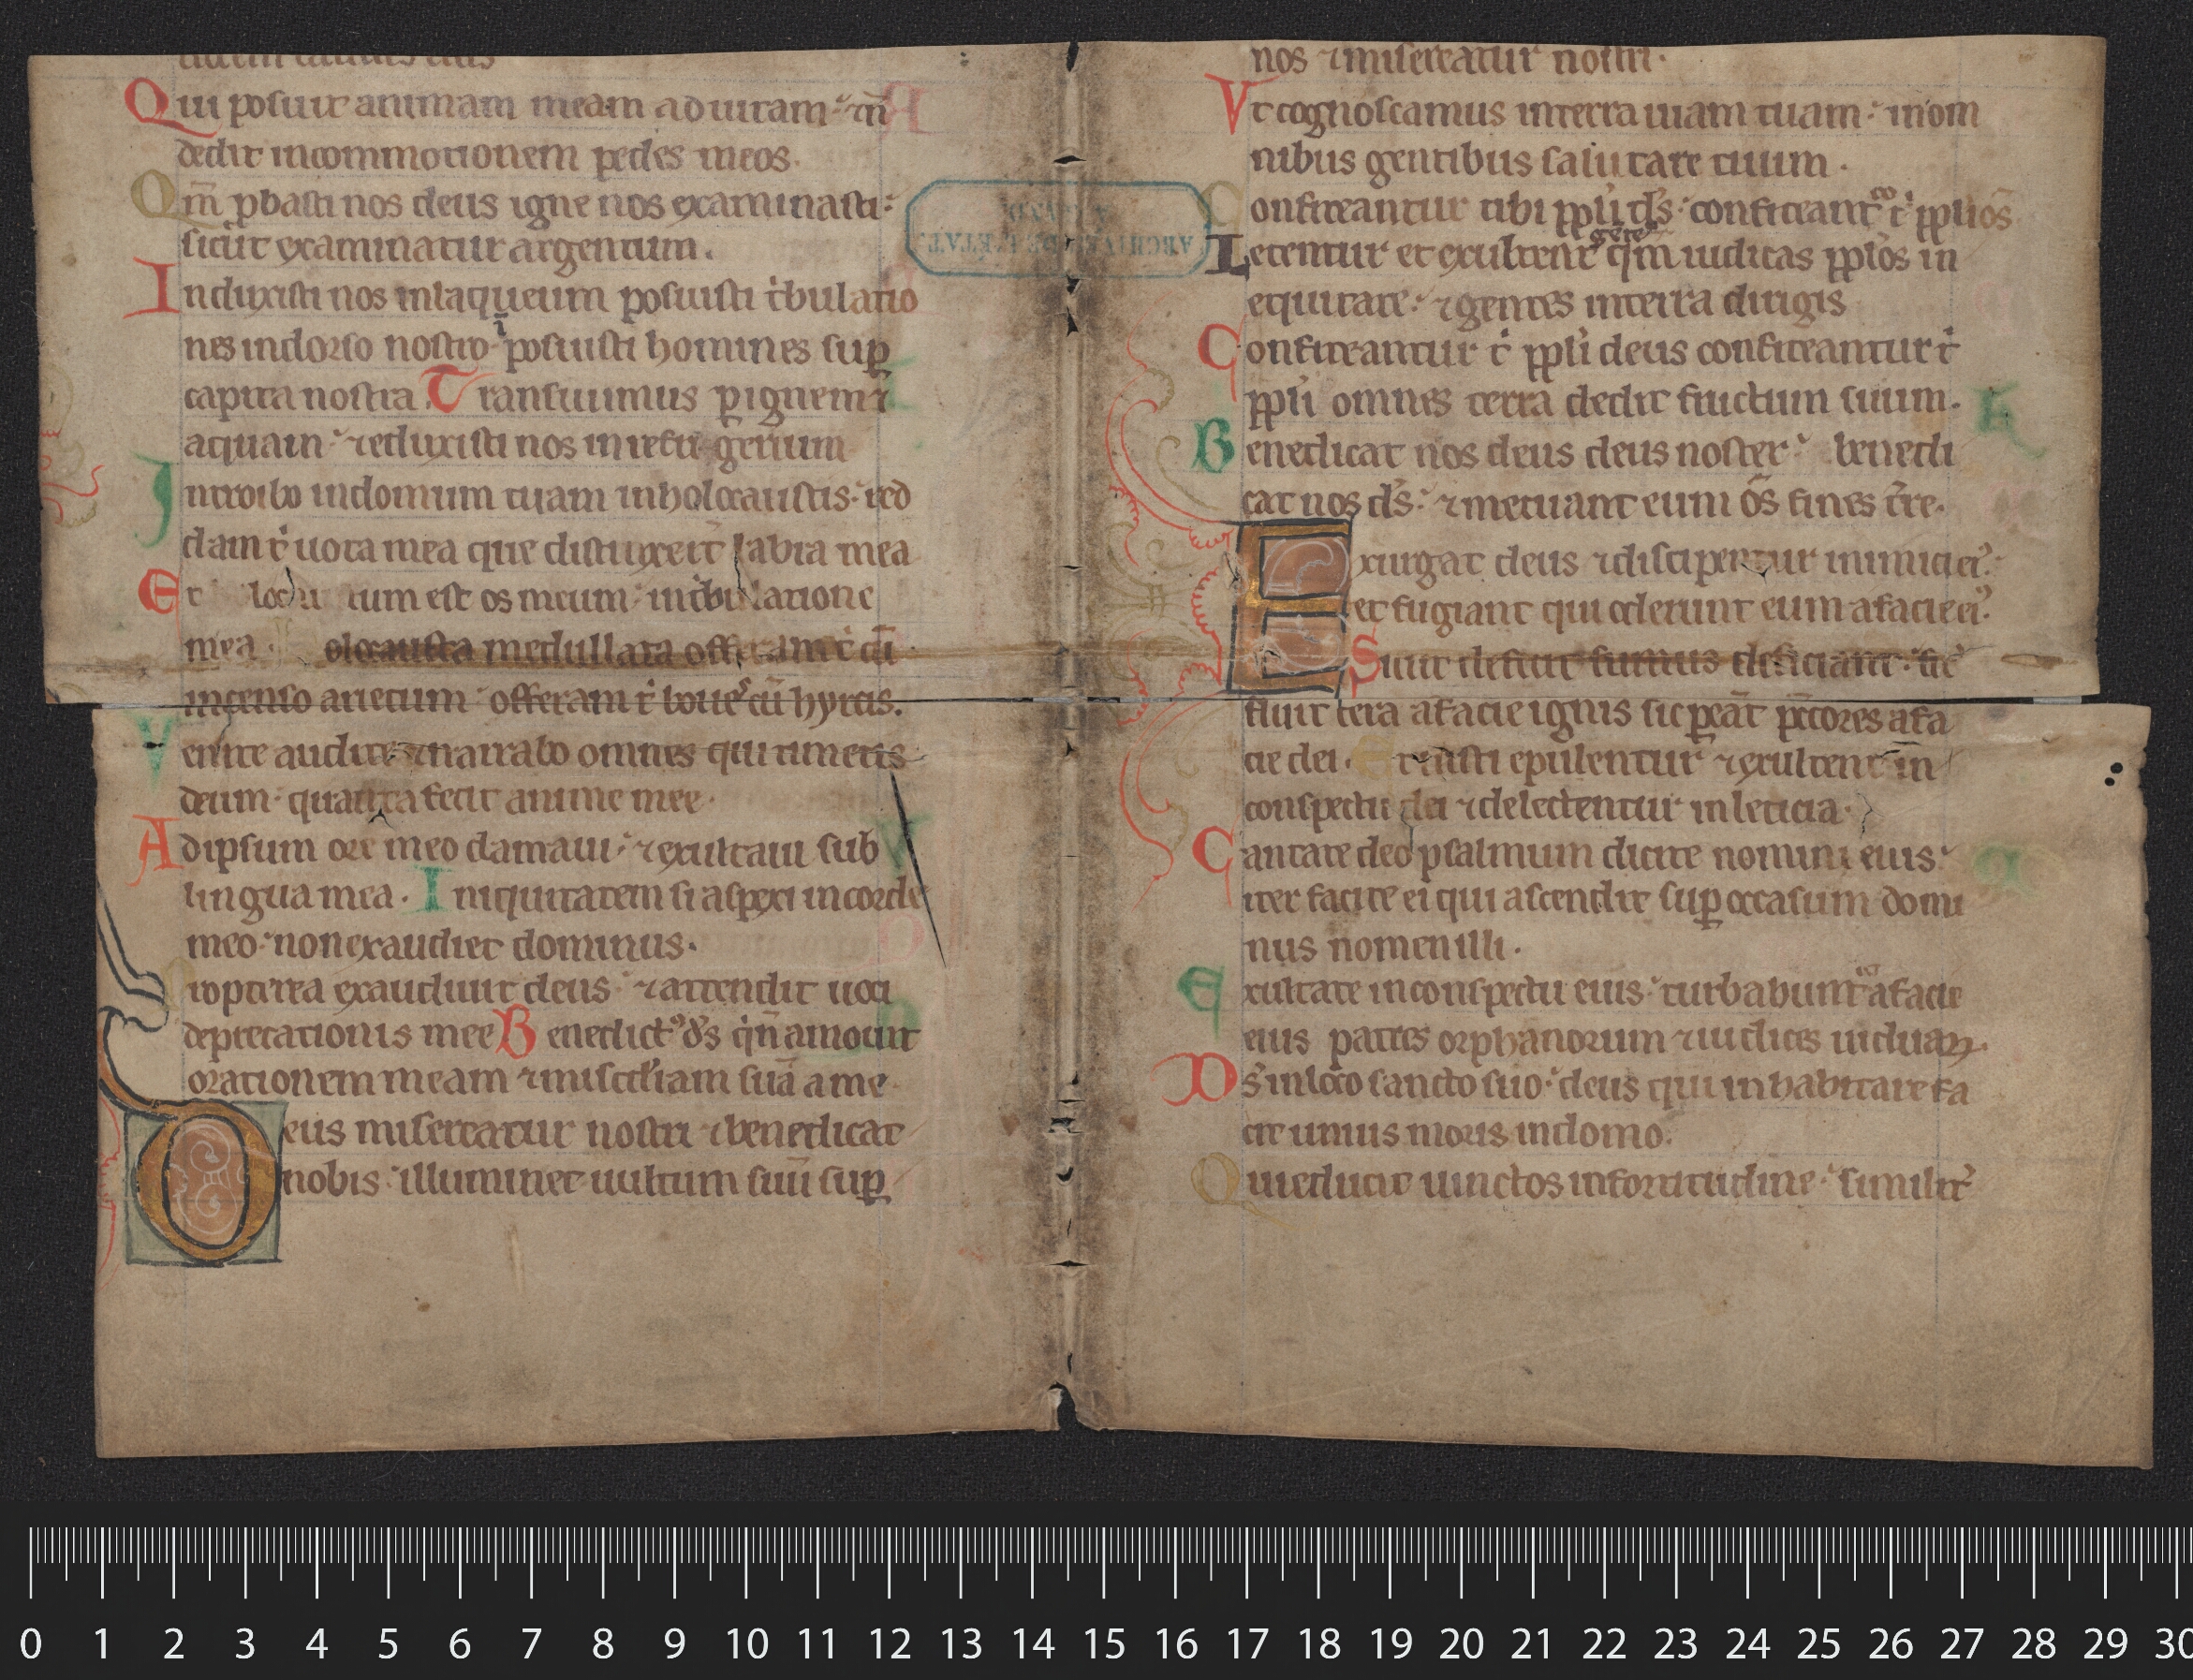 Qui posuit animam meam ad uitam · ⁊ n̄
dedit incommotionem pedes meos.
Qm̄ ꝓbasti nos deus igne nos examinasti ·
sicut examinatur argentum.
Induxisti nos inlaqueum posuisti t'bulatio
nes indorso nostro · īposuisti homines suꝑ
capita nostra. Transiuimus ꝑ ignem ⁊
aquam · ⁊eduxisti nos in refri gerium
Introibo indomum tuam inholocaustis · red
dam t' uota mea que distinxer̄t labia mea
Et locu tum est os meum · int'bulatione
mea. olocausta medullata offeram t' cū
incenso arietum · offeram t' boues cū hyrcis.
Venite audite ⁊narrabo omnes qui timetis
deum · quanta fecit anime mee.
Adipsum ore meo clamaui · ⁊exultaui sub
lingua mea. Iniquitatem si aspexi incorde
meo · nonexaudiet dominus.
ropterea exaudiuit deus · ⁊attendit uoci
deprecationis mee Benedict᾿ d̄s q' n̄ amouit
orationem meam ⁊miscd'iam suā a me
Deus misereatur nostri ⁊benedicat
nobis · illuminet uultum suū suꝑ
nos ⁊misereatur nostri.
Vt cognoscamus interra uiam tuam · inom
nibus gentibus salutare tuum.
Confiteantur tibi ppl'i d's · confiteant' t' ppl'i os̄
Letentur et exultent gētes qm̄ iudicas ppl'os in
equitate · ⁊gentes interra dirigis
Confiteantur t' ppl'i deus confiteantur t'
ppl'i omnes terra dedit fructum suum.
Benedicat nos deus deus noster · benedi
cat nos d's · ⁊metuant eum ōs fines t're.
Exurgat deus ⁊dissipentur inimici ei᾿ ·
et fugiant qui oderunt eum afacie ei᾿.
Sicut deficit fumus deficiant · sic̄
fluit cera afacie ignis sic ꝑeāt pc̄cores afa
cie dei. Et iusti epulentur ⁊exultent in
conspectu dei ⁊delectentur inleticia.
Cantate deo psalmum dicite nomini eius ·
iter facite ei qui ascendit suꝑ occasum domi
nus nomen illi.
Exultate inconspectu eius · turbabunt' afacie
eius patres orphanorum ⁊iudices uiduaꝝ.
D's inloco sancto suo · deus qui inhabitare fa
cit unius moris indomo.
Quieducit uinctos infortitudine · similit'
ARCHIVES DE L'ETAT
0 1 2 3 4 5 6 7 8 9 10 11 12 13 14 15 16 17 18 19 20 21 22 23 24 25 26 27 28 29 30